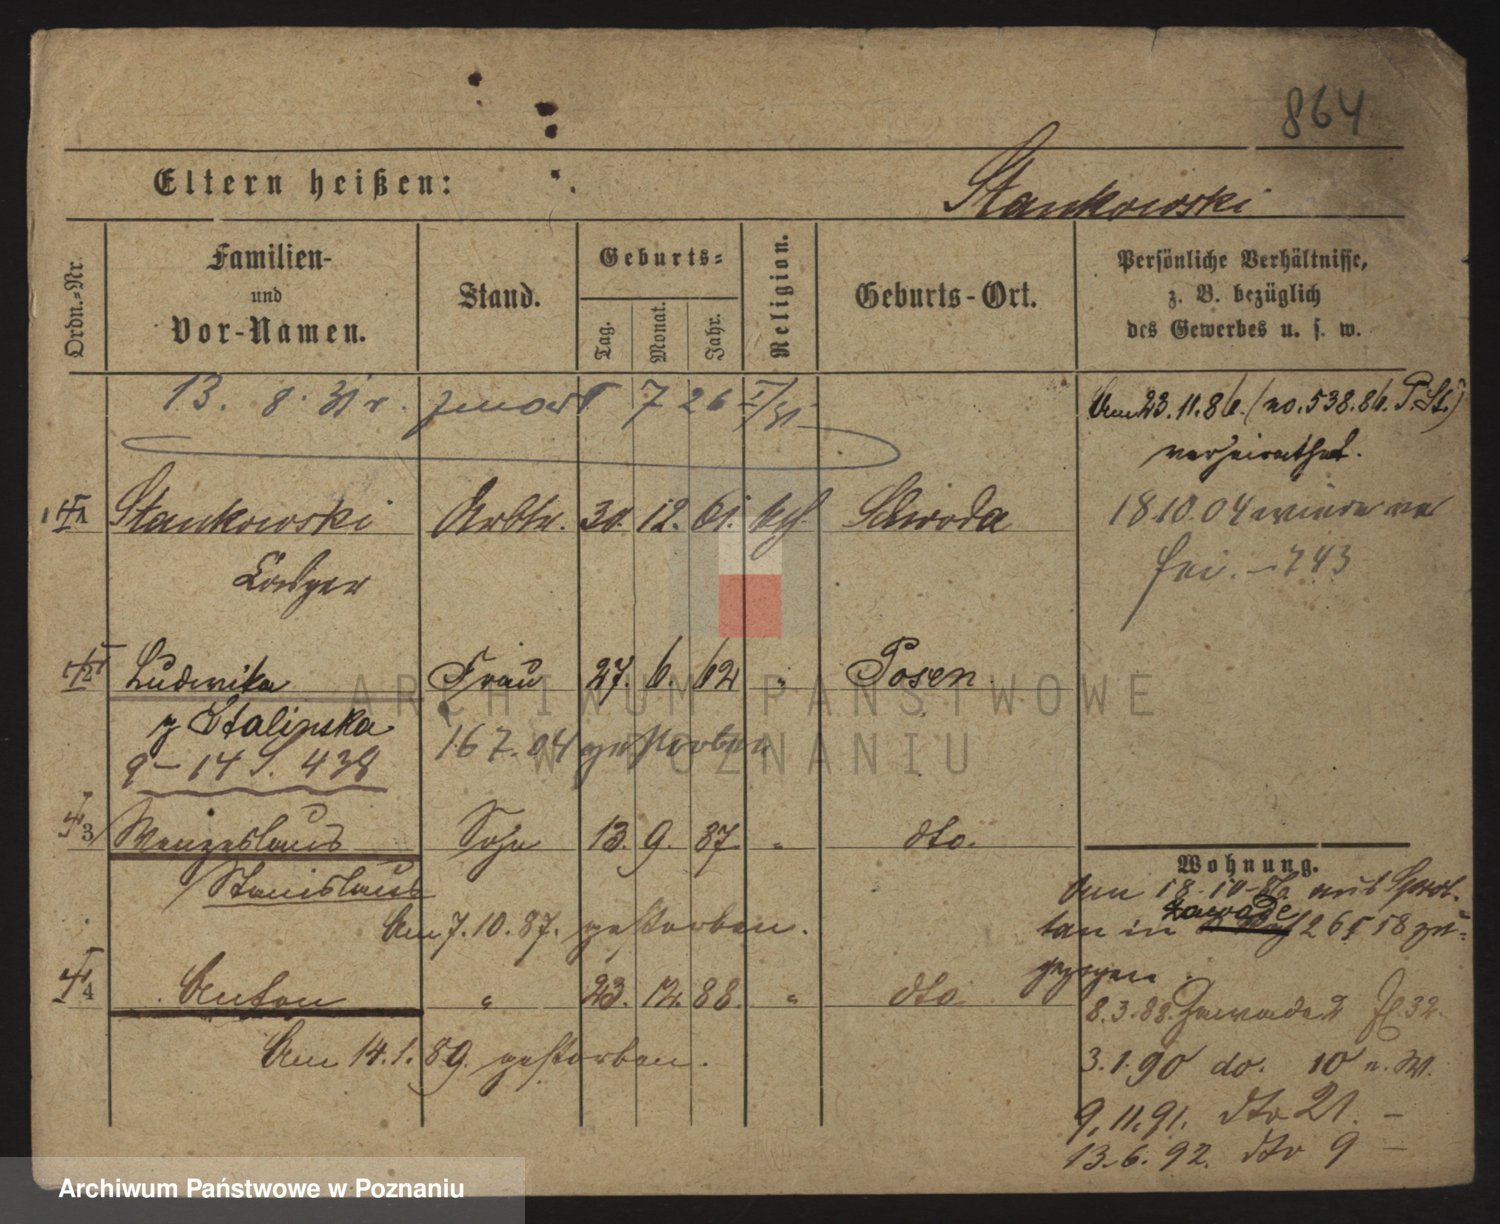 864
Eltern heißen:
Stankowski
Ordn.=Nr.
Familien-
und
Vor-Namen.
Stand.
Geburts=
Tag.
Monat.
Jahr.
Religion.
Geburts-Ort.
Persönliche Verhältnisse,
z. B. bezüglich
des Gewerbes u. s. w.
13. 8. 31 7 26
Am 23.11.86. (no. 538.86. P. St.)
verheirathet.
1 Stankowski Arbtr. 30. 12. 61. kth. Schroda
18.10.04 wieder ver
hei. – 743
Casper
2 Ludwika Frau 27. 6. 62 " Posen
g Stalinska
9 – 14 S. 438
16 7. 04 gestorben
3 Wenzeslaus Sohn 13. 9. 87. " dto.
Stanislaus
Am 7.10.87. gestorben.
4 Anton " 23. 12. 88. " dto
Am 14.1.89. gestorben.
Wohnung.
Am 18-10-86 aus
in Zawade 26 18 zu=
gezogen.
8.3.88. Zawade 2 32.
3.1.90 do. 10 n. W.
9.11.91. dto 21. –
13.6.92. dto 9 –
ARCHIWUM PAŃSTWOWE
W POZNANIU
Archiwum Państwowe w Poznaniu